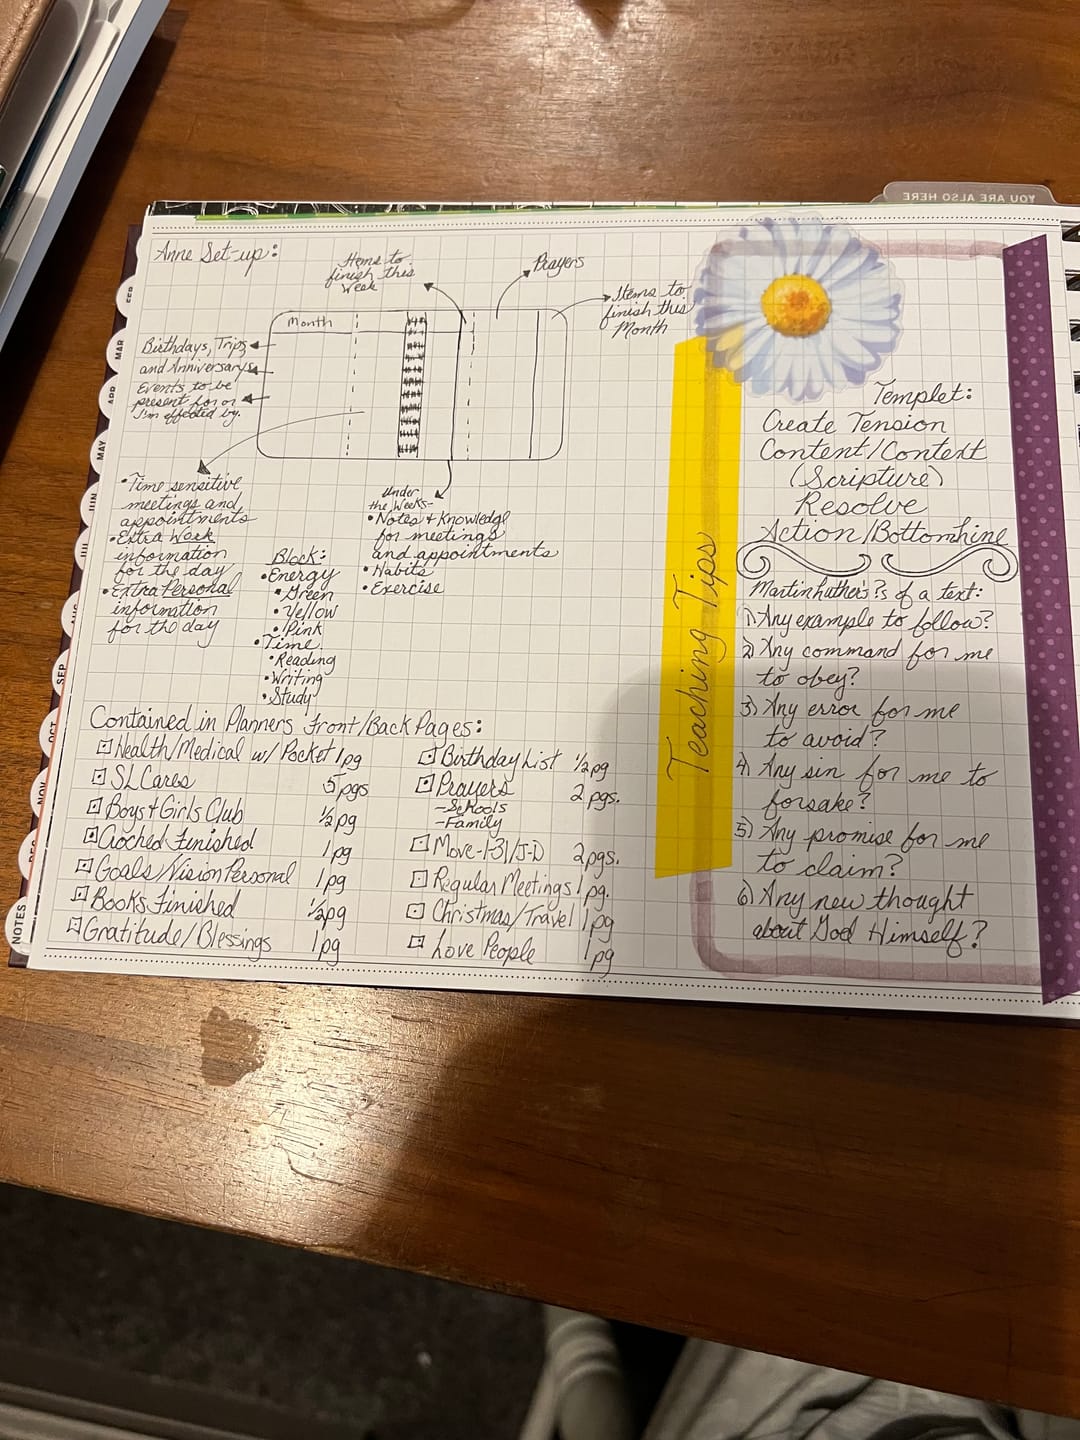 YOU ARE ALSO HERE
Anne Set-up:
Items to
finish this
Week
Prayers
Items to
finish this
Month
Month
Birthdays, Trips
and Anniversarys
Events to be
present for or
I'm effected by.
• Time sensitive
meetings and
appointments
• Extra Work
information
for the day
• Extra Personal
information
for the day
Block:
• Energy
• Green
• Yellow
• Pink
• Time
• Reading
• Writing
• Study
Under
the Weeks-
• Notes + Knowledge
for meetings
and appointments
• Habits
• Exercise
Contained in Planners Front/Back Pages:
Health/Medical w/ Pocket 1pg
SL Cares 5 pgs
Boys + Girls Club 1/2 pg
Croched Finished 1 pg
Goals/Vision Personal 1 pg
Books Finished 1/2 pg
Gratitude/Blessings 1 pg
Birthday List 1/2 pg
Prayers 2 pgs.
- Schools
- Family
Move-1-31/J-D 2 pgs.
Regular Meetings 1 pg.
Christmas/Travel 1 pg
Love People 1 pg
Teaching Tips
Templet:
Create Tension
Content/Context
(Scripture)
Resolve
Action/Bottomline
Martin Luther's ?s of a text:
1) Any example to follow?
2) Any command for me
to obey?
3) Any error for me
to avoid?
4) Any sin for me to
forsake?
5) Any promise for me
to claim?
6) Any new thought
about God Himself?
FEB
MAR
APR
MAY
JUN
JUL
AUG
SEP
OCT
NOV
DEC
NOTES